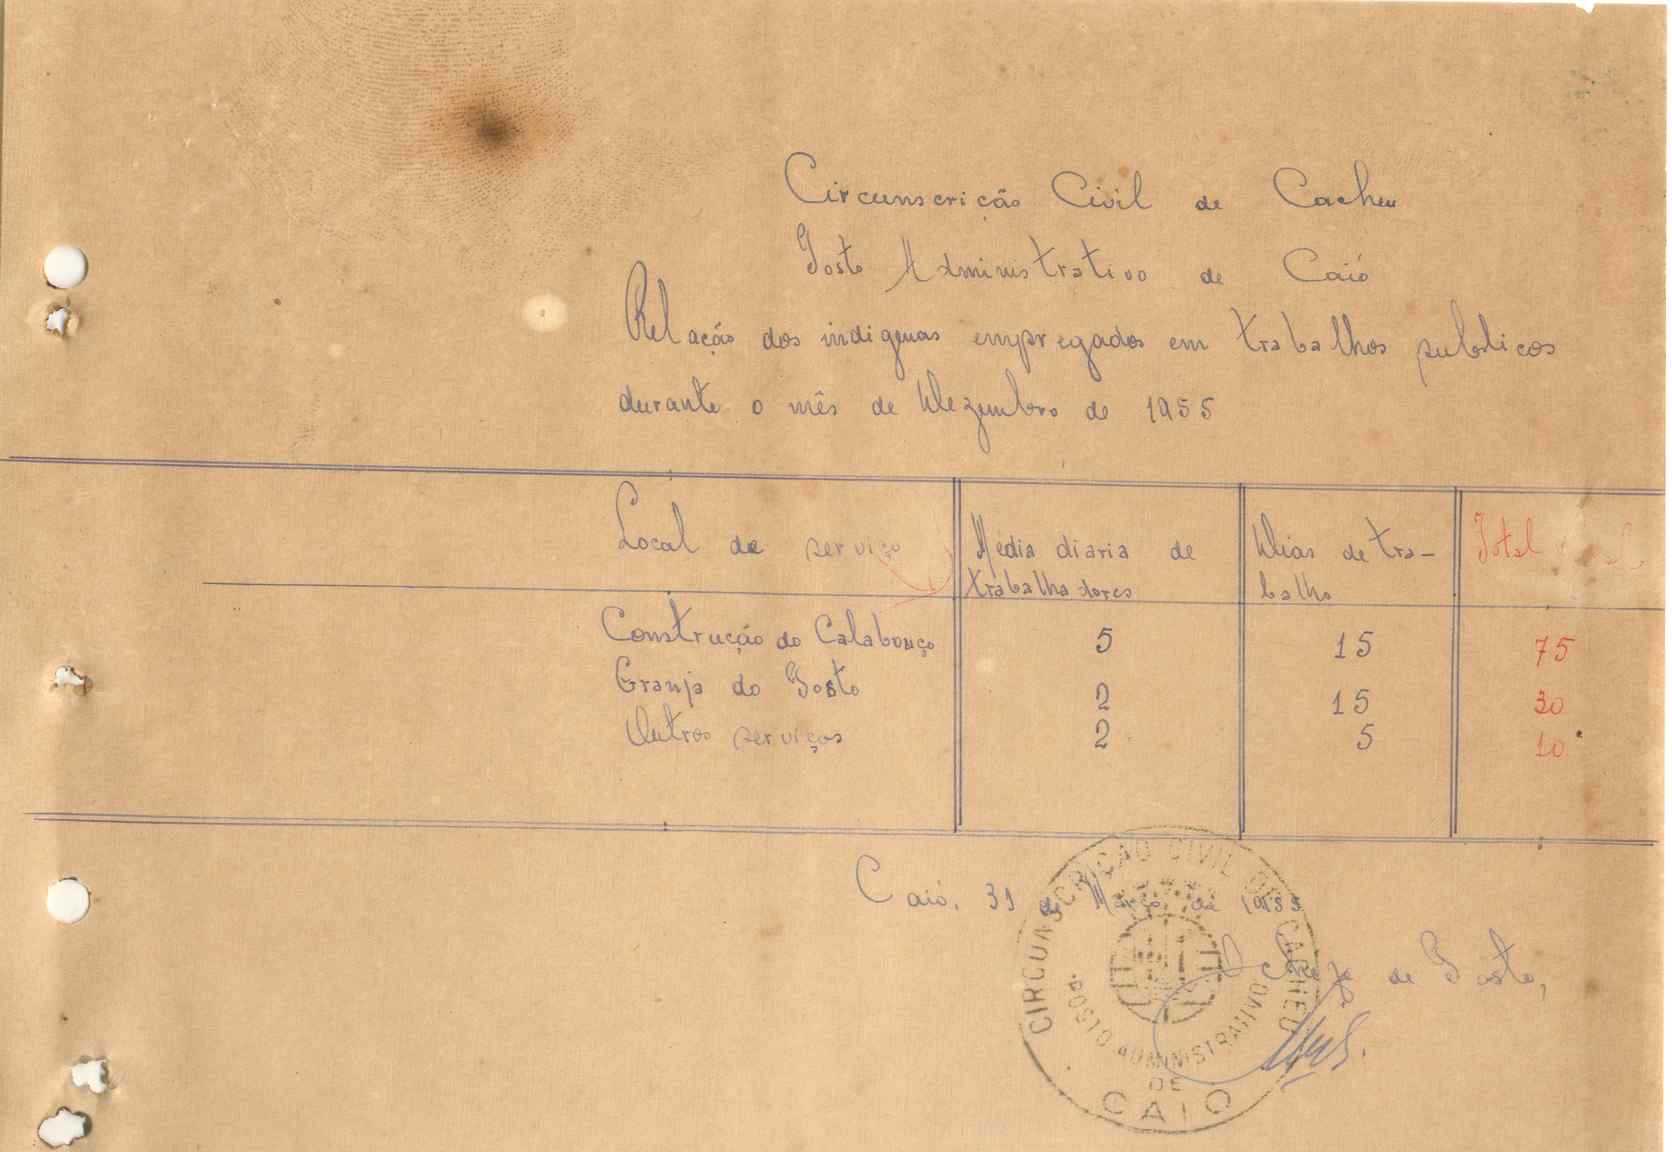 Circunscrição Civil de Cacheu
Posto Administrativo de Caió
Relação dos indigenas empregados em trabalhos publicos
durante o mês de Dezembro de 1955
Local de serviço
Média diaria de
trabalhadores
Dias de tra-
balho
Total
Construção do Calabouço 5 15 75
Granja do Posto 2 15 30
Outros serviços 2 5 10
Caió, 31 de Março de 1955
O Chefe de Posto,
CIRCUNSCRIÇÃO CIVIL DE CACHEU
POSTO ADMINISTRATIVO
DE
CAIO